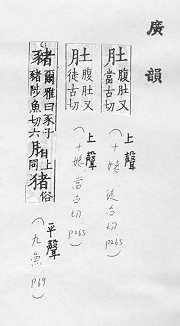 廣韻
肚 腹肚又當古切 上聲 (十姥 徒古切 P265)
肚 腹肚又徒古切 上聲 (十姥 當古切 P265)
豬 爾雅曰豕子豬陟魚切六 上同 猪 俗 平聲 (九魚 P69)